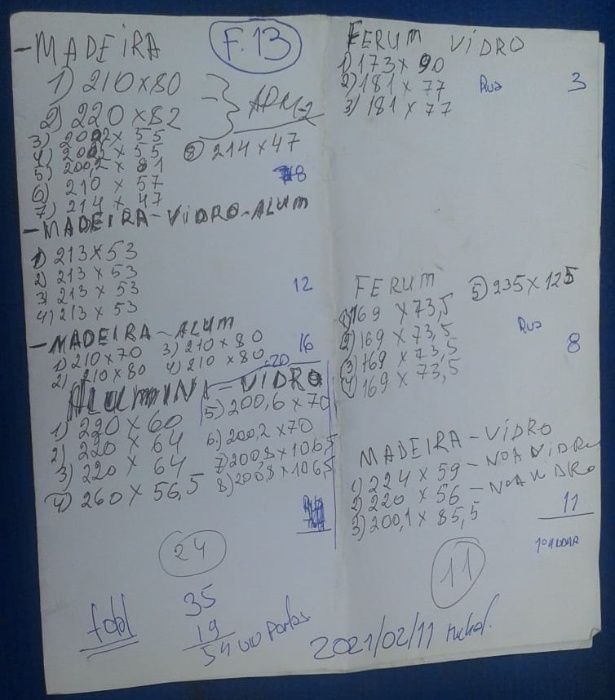 -MADEIRA
F.13
1) 210×80
2) 220×82
3) 202×55
4) 202×55
5) 200,2×81
6) 210×57
7) 214×47
8) 214×47
8
-MADEIRA-VIDRO-ALUM
1) 213×53
2) 213×53
3) 213×53
4) 213×53
12
-MADEIRA-ALUM
1) 210×70
2) 210×80
3) 210×80
4) 210×80
16
20
ALUMINI-VIDRO
1) 220×60
2) 220×64
3) 220×64
4) 260×56,5
5) 200,6×70
6) 200,2×70
7) 200,8×106,5
8) 200,8×106,5
24
total
35
19
54
FERUM VIDRO
1) 173×90
2) 181×77
3) 181×77
Rua
3
FERUM
1) 169×73,5
2) 169×73,5
3) 169×73,5
4) 169×73,5
5) 235×125
Rua
8
MADEIRA-VIDRO
1) 224×59-NOA VIDRO
2) 220×56-NOA VIDRO
3) 200,1×85,5
11
11
2021/02/11